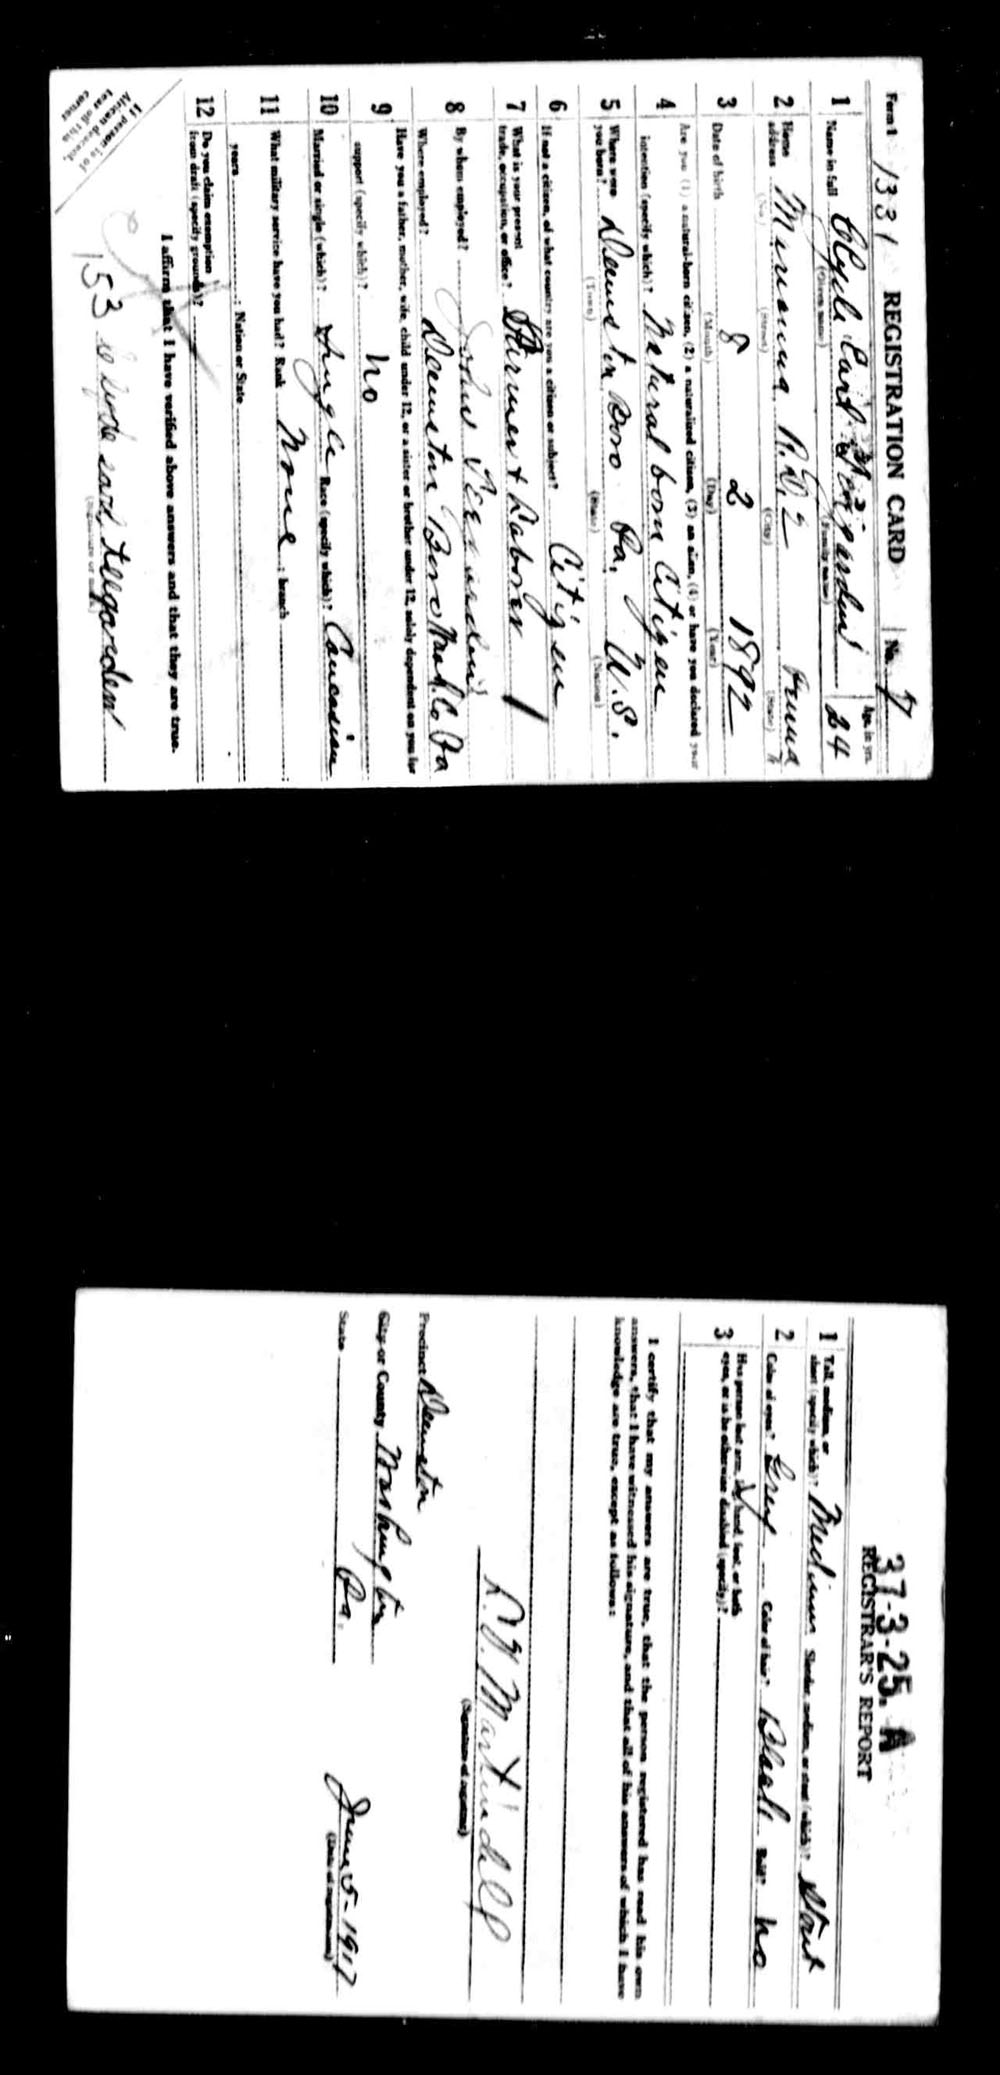 Form 1 1331 REGISTRATION CARD No. 7
1 Name in full Clyde Earl Age, in yrs. 24
(Given name) (Family name)
2 Home address R.D. 2 Penna
(No.) (Street) (City) (State)
3 Date of birth 8 2 1892
(Month) (Day) (Year)
4 Are you (1) a natural-born citizen, (2) a naturalized citizen, (3) an alien, (4) or have you declared your
intention (specify which)? Natural born Citizen
5 Where were you born? Deemston Boro Pa. U.S.
(Town) (State) (Nation)
6 If not a citizen, of what country are you a citizen or subject? Citizen
7 What is your present trade, occupation, or office? Farmer & Laborer
8 By whom employed? John
Where employed? Deemston Boro Wash. Co Pa
9 Have you a father, mother, wife, child under 12, or a sister or brother under 12, solely dependent on you for
support (specify which)? no
10 Married or single (which)? Single Race (specify which)? Caucasian
11 What military service have you had? Rank None ; branch
years ; Nation or State
12 Do you claim exemption from draft (specify grounds)?
I affirm that I have verified above answers and that they are true.
153 Clyde earl Teegarden
(Signature or mark)
If person is of
African descent,
tear off this
corner
37-3-25. A
REGISTRAR'S REPORT
1 Tall, medium, or short (specify which)? Medium Slender, medium, or stout (which)? Stout
2 Color of eyes? Grey Color of hair? Black Bald? No
3 Has person lost arm, leg, hand, foot, or both
eyes, or is he otherwise disabled (specify)?
I certify that my answers are true, that the person registered has read his own
answers, that I have witnessed his signature, and that all of his answers of which I have
knowledge are true, except as follows:
Martindell
(Signature of registrar)
Precinct Deemston
City or County Washington
State Pa. June 5-1917
(Date of registration)